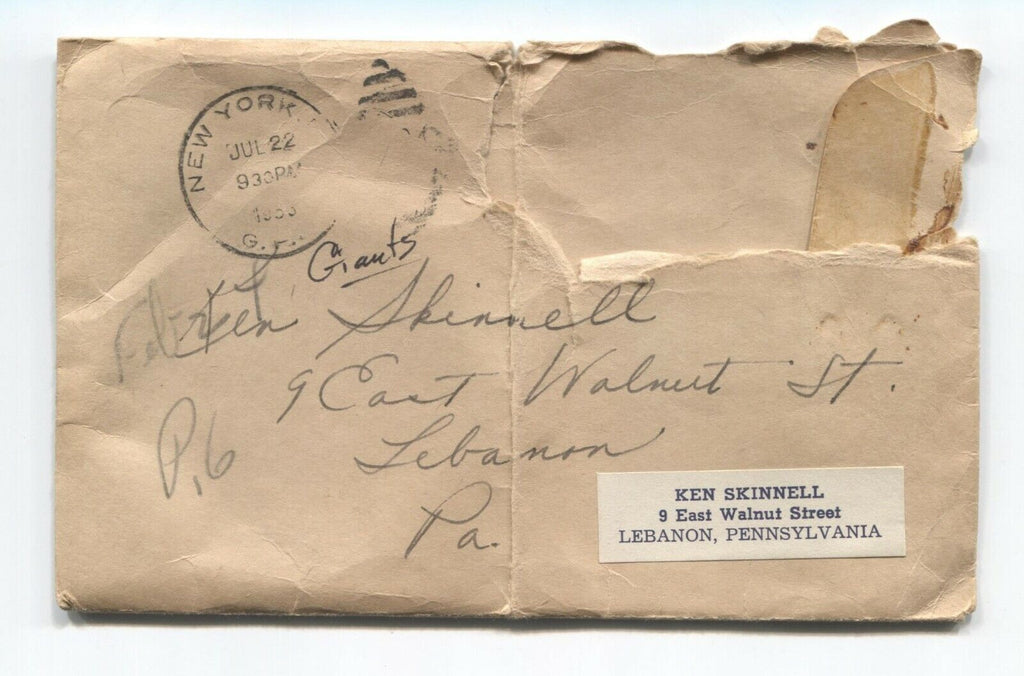 NEW YORK,
JUL 22
930PM
G.P.
Giants
Ken Skinnell
9 East Walnut St.
Lebanon
Pa.
P.6
KEN SKINNELL
9 East Walnut Street
LEBANON, PENNSYLVANIA